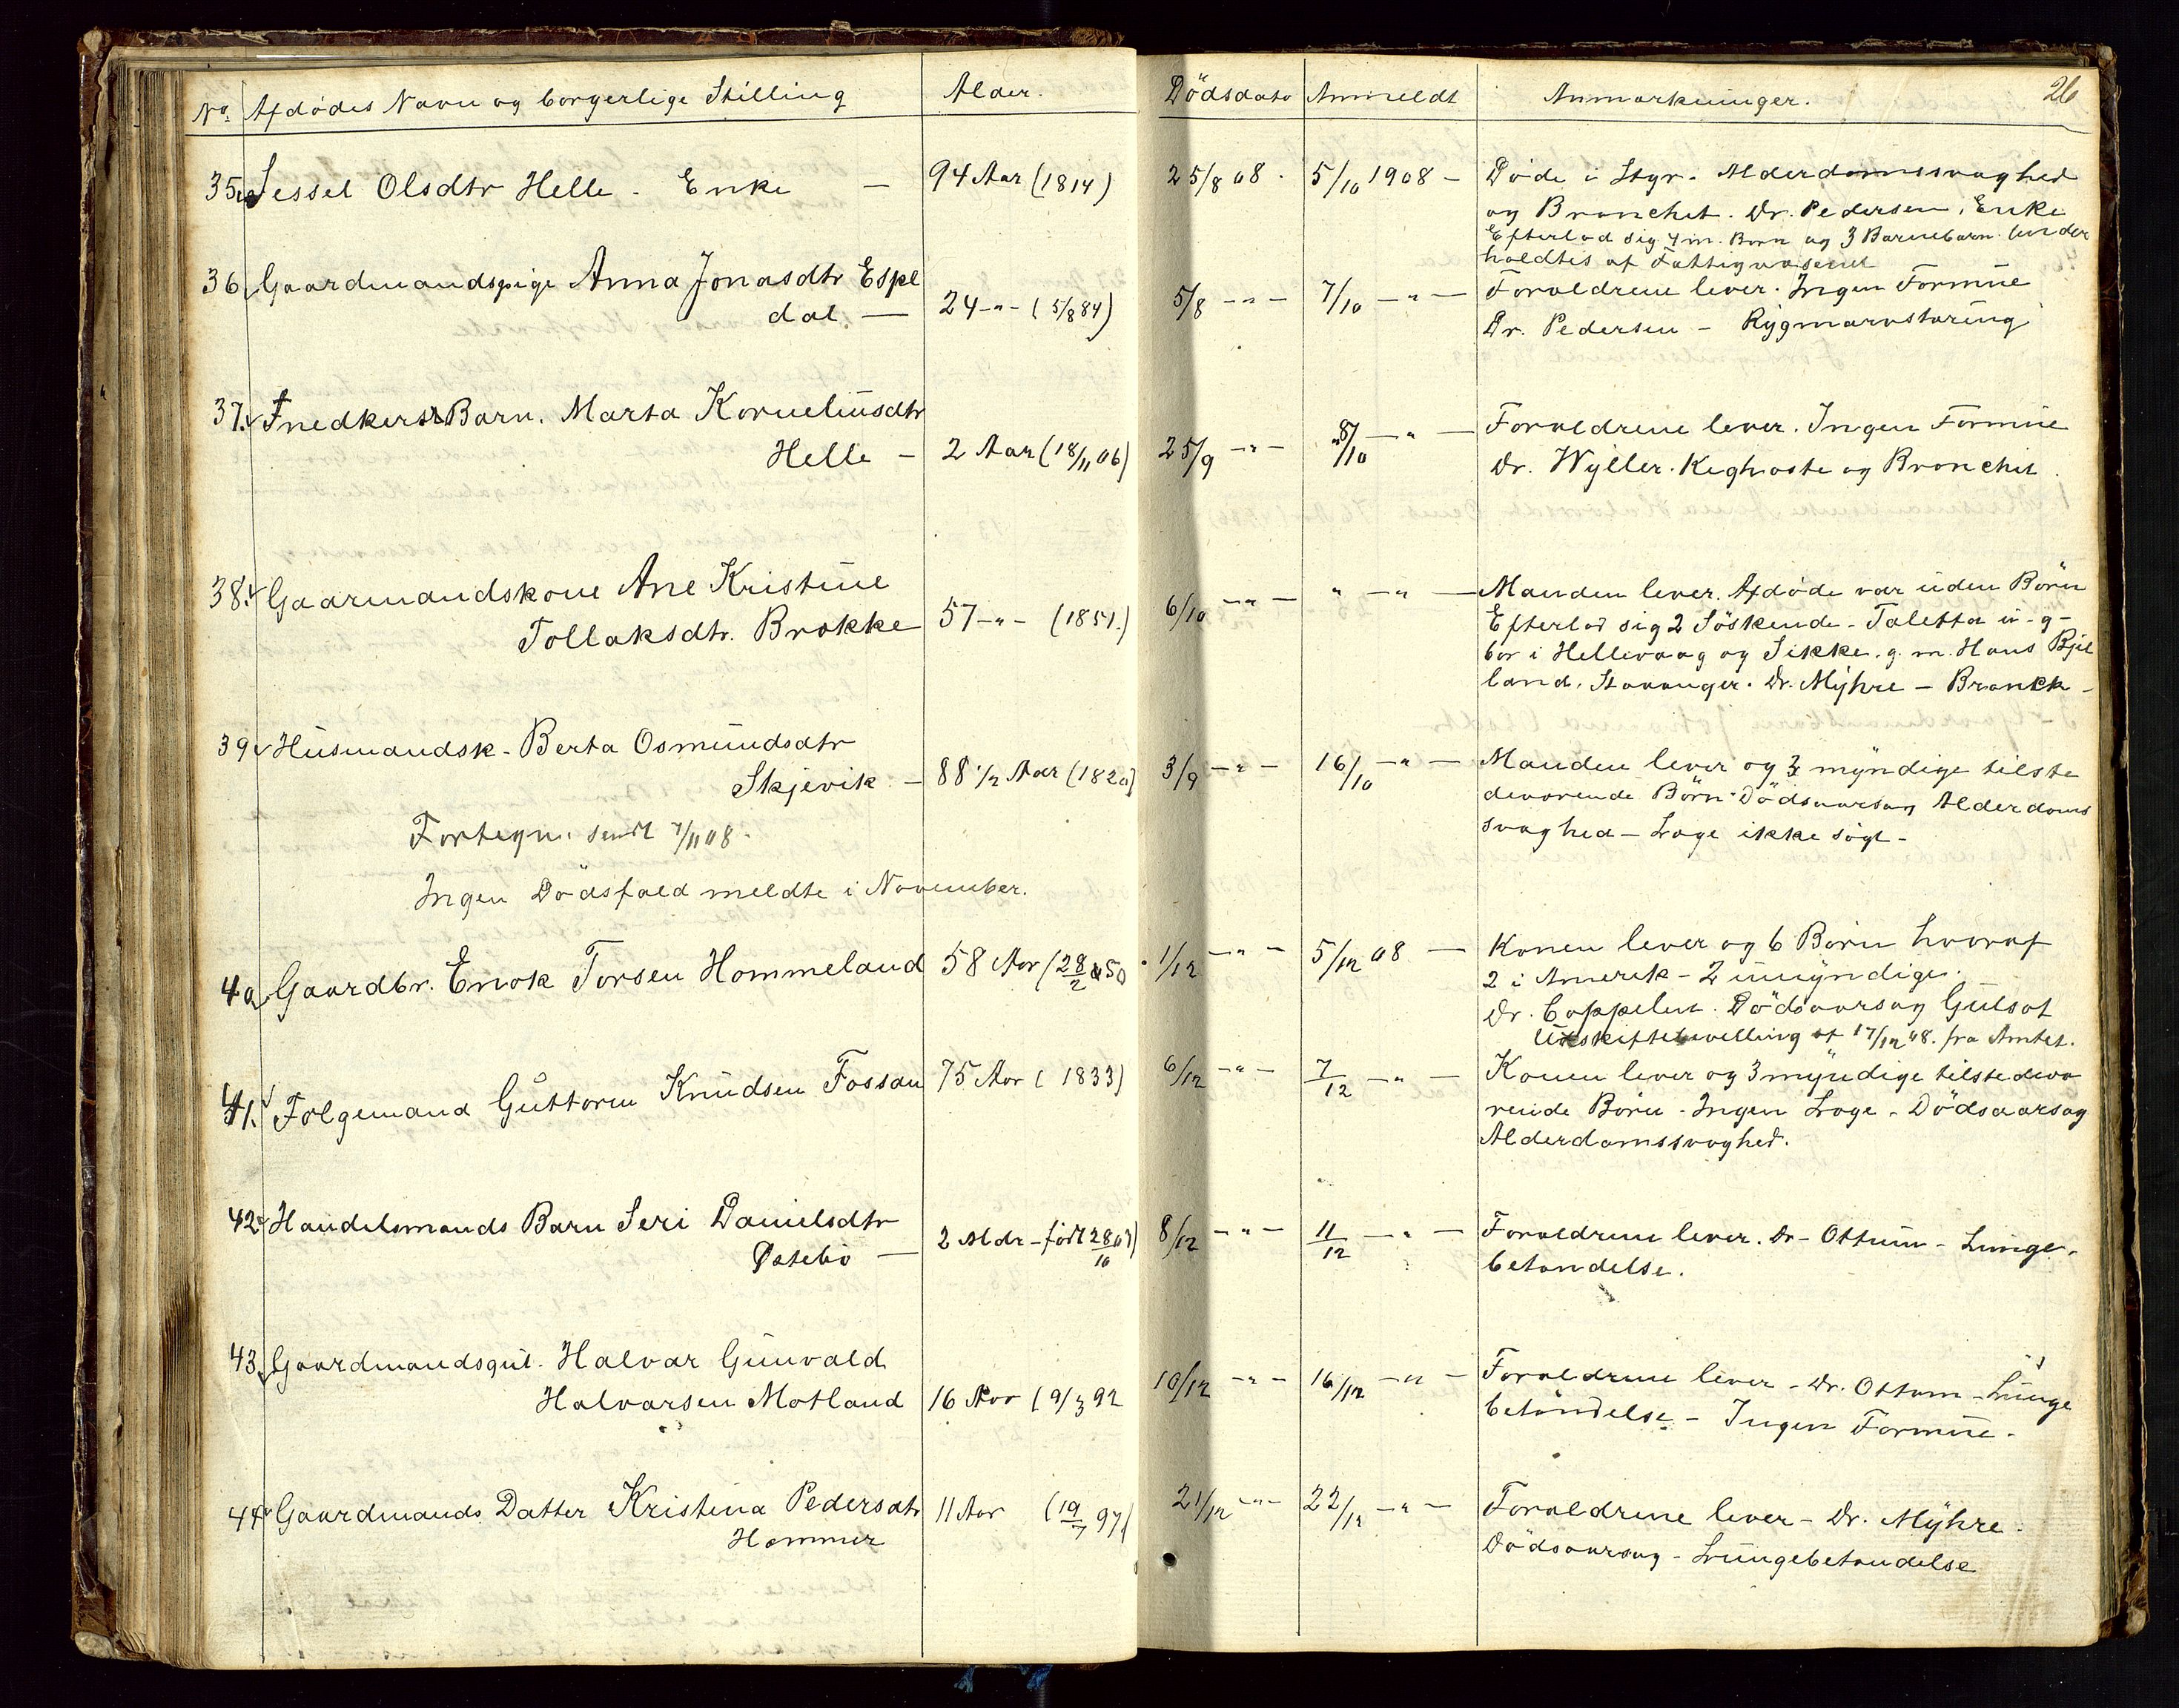 No. Afdödes Navn og borgerlige Stilling Alder. Dödsdato Anmeldt Anmærkninger. 26
35. Sessel Olsdtr Helle - Enke — 94 Aar (1814) 25/8 08. 5/10 1908 - Døde i Styr. Alderdomssvaghed
og Bronchit. Dr. Pedersen, Enke
Efterlod sig 4 m. Börn og 3 Barnebarn. Under
holdtes af Fattigvæsenet
36. Gaardmandspige Anna Jonasdtr Espe
dal — 24 -"- (5/8 84) 5/8 -"- 7/10 -"- Forældrene lever. Ingen Formue
Dr. Pedersen - Rygmarvstæring
37. Snedkers Barn. Marta Korneliusdtr
Helle - 2 Aar (18/11 06) 25/9 -"- 8/10 -"- Forældrene lever. Ingen Formue
Dr. Wyller. Kighoste og Bronchit.
38. Gaarmandskone Ane Kristine
Tollaksdtr. Brokke 57 -"- (1851.) 6/10 -"- " -"- Manden lever. Afdøde var uden Börn
Efterlod sig 2 Söskende - Taletta u - g -
bor i Hellevaag og Sikke. g. m. Hans Bjel
land, Stavanger. Dr. Myhre - Bronch -
39. Husmandsk. Berta Osmundsdtr
Skjevik - 88 1/2 Aar (1820) 3/9 -"- 16/10 -"- Manden lever og 3 myndige tilste
deværende Börn - Dödsaarsag Alderdoms
svaghed - Læge ikke søgt -
Fortegn. sendt 7/11 08.
Ingen Dödsfald meldte i November.
40. Gaardbr. Enok Torsen Hommeland 58 Aar (28/2 50 1/12 -"- 5/12 08 - Konen lever og 6 Börn hvoraf
2 i Amerik - 2 umyndige.
Dr. Cappelen. Dödsaarsag Gulsot
Udskiftebevilling af 17/12 08. fra Amtet.
41. Følgemand Guttorm Knudsen Fossan 75 Aar (1833) 6/12 -"- 7/12 -"- Konen lever og 3 myndige tilstedeværende
rende Börn - Ingen Læge - Dödsaarsag
Alderdomssvaghed.
42. Handelsmands Barn Seri Danielsdtr
Østebø - 2 Mdr - född 28/10 07) 8/12 -"- 11/12 -"- Forældrene lever. Dr - Ottum - Lunge-
betændelse.
43. Gaardmandsgut. Halvar Gunvald
Halvarsen Motland 16 Aar (9/3 92 10/12 -"- 16/12 -"- Forældrene lever - Dr. Ottum - Lunge
betændelse - Ingen Formue.
44. Gaardmands Datter Kristina Pedersdtr
Hommer 11 Aar (19/7 97) 21/12 -"- 22/12 -"- Forældrene lever - Dr. Myhre.
Dödsaarsag - Lungebetændelse